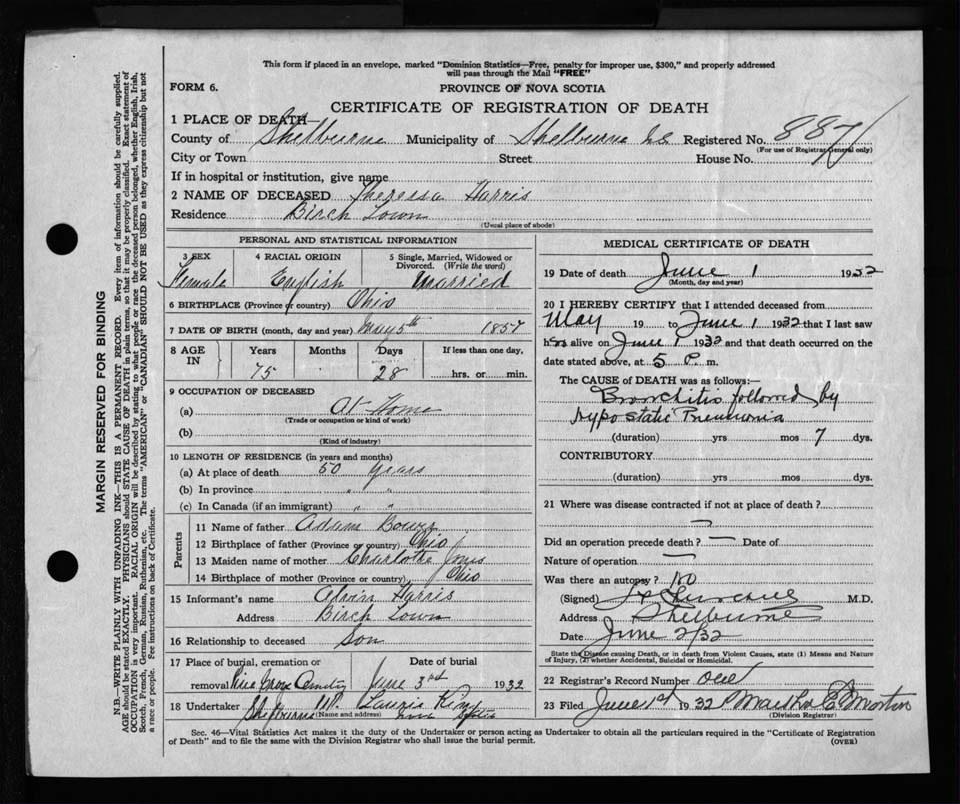 This form if placed in an envelope, marked "Dominion Statistics—Free, penalty for improper use, $300," and properly addressed
will pass through the Mail "FREE"
FORM 6.
PROVINCE OF NOVA SCOTIA
CERTIFICATE OF REGISTRATION OF DEATH
1 PLACE OF DEATH
County of Shelburne Municipality of Shelburne Registered No. 887
(For use of Registrar General only)
City or Town Street House No.
If in hospital or institution, give name
2 NAME OF DECEASED Theressa Harris
Residence Birch Town
(Usual place of abode)
PERSONAL AND STATISTICAL INFORMATION
3 SEX 4 RACIAL ORIGIN 5 Single, Married, Widowed or
Divorced. (Write the word)
Female English Married
6 BIRTHPLACE (Province or country) Ohio
7 DATE OF BIRTH (month, day and year) May 5th 1857
8 AGE IN Years Months Days If less than one day,
75 28 hrs. or min.
9 OCCUPATION OF DECEASED
(a) At Home
(Trade or occupation or kind of work)
(b)
(Kind of industry)
10 LENGTH OF RESIDENCE (in years and months)
(a) At place of death 50 years
(b) In province " "
(c) In Canada (if an immigrant) " "
Parents
11 Name of father Adam
12 Birthplace of father (Province or country) Ohio
13 Maiden name of mother Charlotte Jones
14 Birthplace of mother (Province or country) Ohio
15 Informant's name Harris
Address Birch Town
16 Relationship to deceased Son
17 Place of burial, cremation or Date of burial
removal Pine Grove Cemetry June 3rd 1932
18 Undertaker
Shelburne
(Name and address)
MEDICAL CERTIFICATE OF DEATH
19 Date of death June 1 1932
(Month, day and year)
20 I HEREBY CERTIFY that I attended deceased from
May 19 to June 1 1932 that I last saw
her alive on June 1 1932 and that death occurred on the
date stated above, at 5 P. m.
The CAUSE OF DEATH was as follows:—
Bronchitis followed by
Hypostatic Pneumonia
(duration) yrs mos 7 dys.
CONTRIBUTORY
(duration) yrs mos dys.
21 Where was disease contracted if not at place of death?
—
Did an operation precede death? — Date of
Nature of operation —
Was there an autopsy? No
(Signed) M.D.
Address Shelburne
Date June 2/32
State the Disease causing Death, or in death from Violent Causes, state (1) Means and Nature
of Injury, (2) whether Accidental, Suicidal or Homicidal.
22 Registrar's Record Number one
23 Filed June 1st 1932 Martha E. Morton
(Division Registrar)
Sec. 46—Vital Statistics Act makes it the duty of the Undertaker or person acting as Undertaker to obtain all the particulars required in the "Certificate of Registration
of Death" and to file the same with the Division Registrar who shall issue the burial permit.
(OVER)
MARGIN RESERVED FOR BINDING
N.B.—WRITE PLAINLY WITH UNFADING INK—THIS IS A PERMANENT RECORD. Every item of information should be carefully supplied.
AGE should be stated EXACTLY. PHYSICIANS should STATE CAUSE OF DEATH in plain terms, so that it may be properly classified. Exact statement of
OCCUPATION is very important. RACIAL ORIGIN will be described by stating to what people or race the deceased person belonged, whether English, Irish,
Scotch, French, German, Russian, Ruthenian, etc. The terms "AMERICAN" or "CANADIAN" SHOULD NOT BE USED as they express citizenship but not
a race or people. See instructions on back of Certificate.